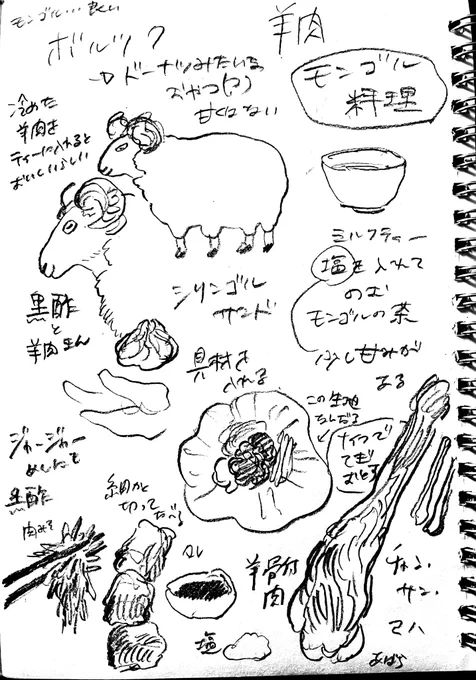 モンゴル…良い
ボルツク
→ドーナツみたいな
おやつ(?)
甘くはない
羊肉
モンゴル
料理
冷めた
羊肉を
ティーに入れると
おいしいらしい
ミルクティー
塩を入れて
のむ
モンゴルの茶
少し甘みが
ある
シリンゴル
サンド
黒酢
と
羊肉まん
具材を
入れる
この生地
なんだろ
ナイフで
てぎ
おとす
ジャージャー
めんにも
黒酢
肉みそ
細かく
切って
たべる
タレ
塩
羊骨付
肉
チャン
サン
マハ
あばら